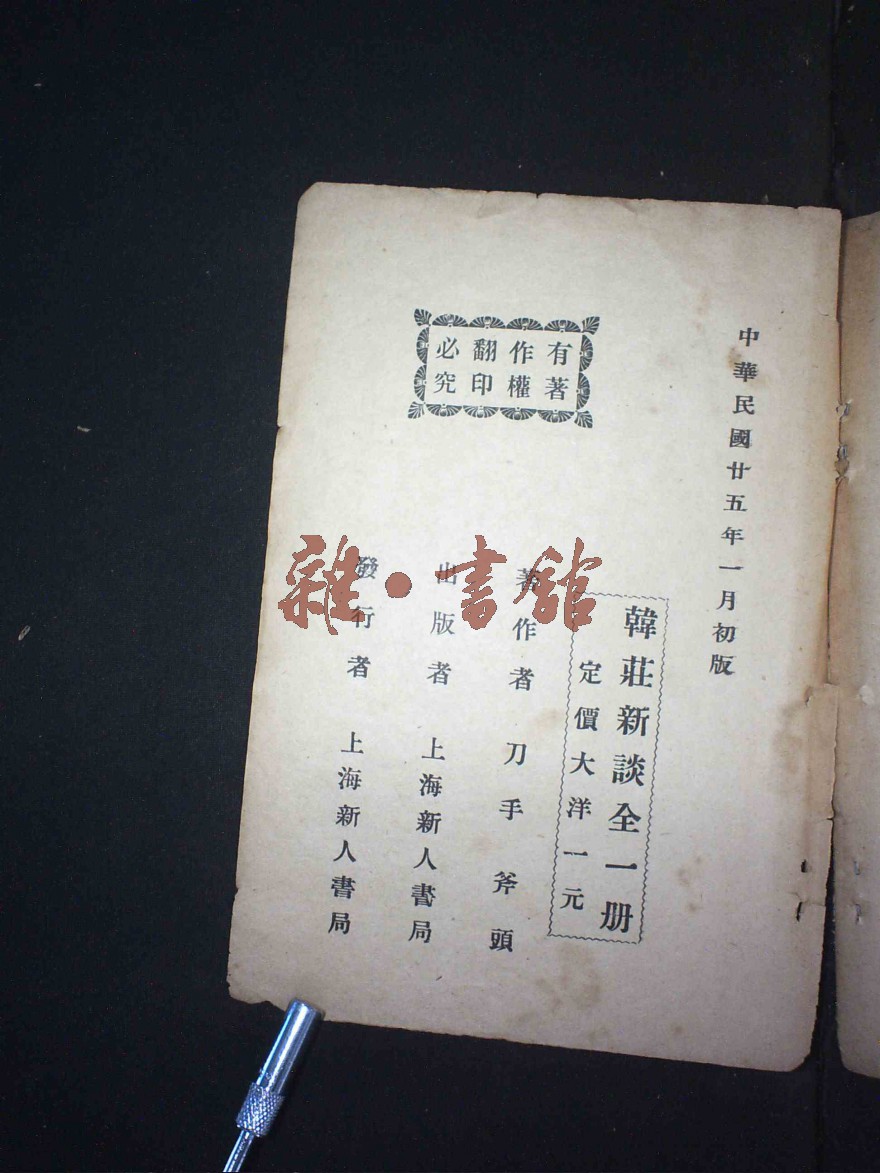 中華民國廿五年一月初版
韓莊新談全一册
定價大洋一元
有著
作權
翻印
必究
著作者 刀手斧頭
出版者 上海新人書局
發行者 上海新人書局
雜·書館